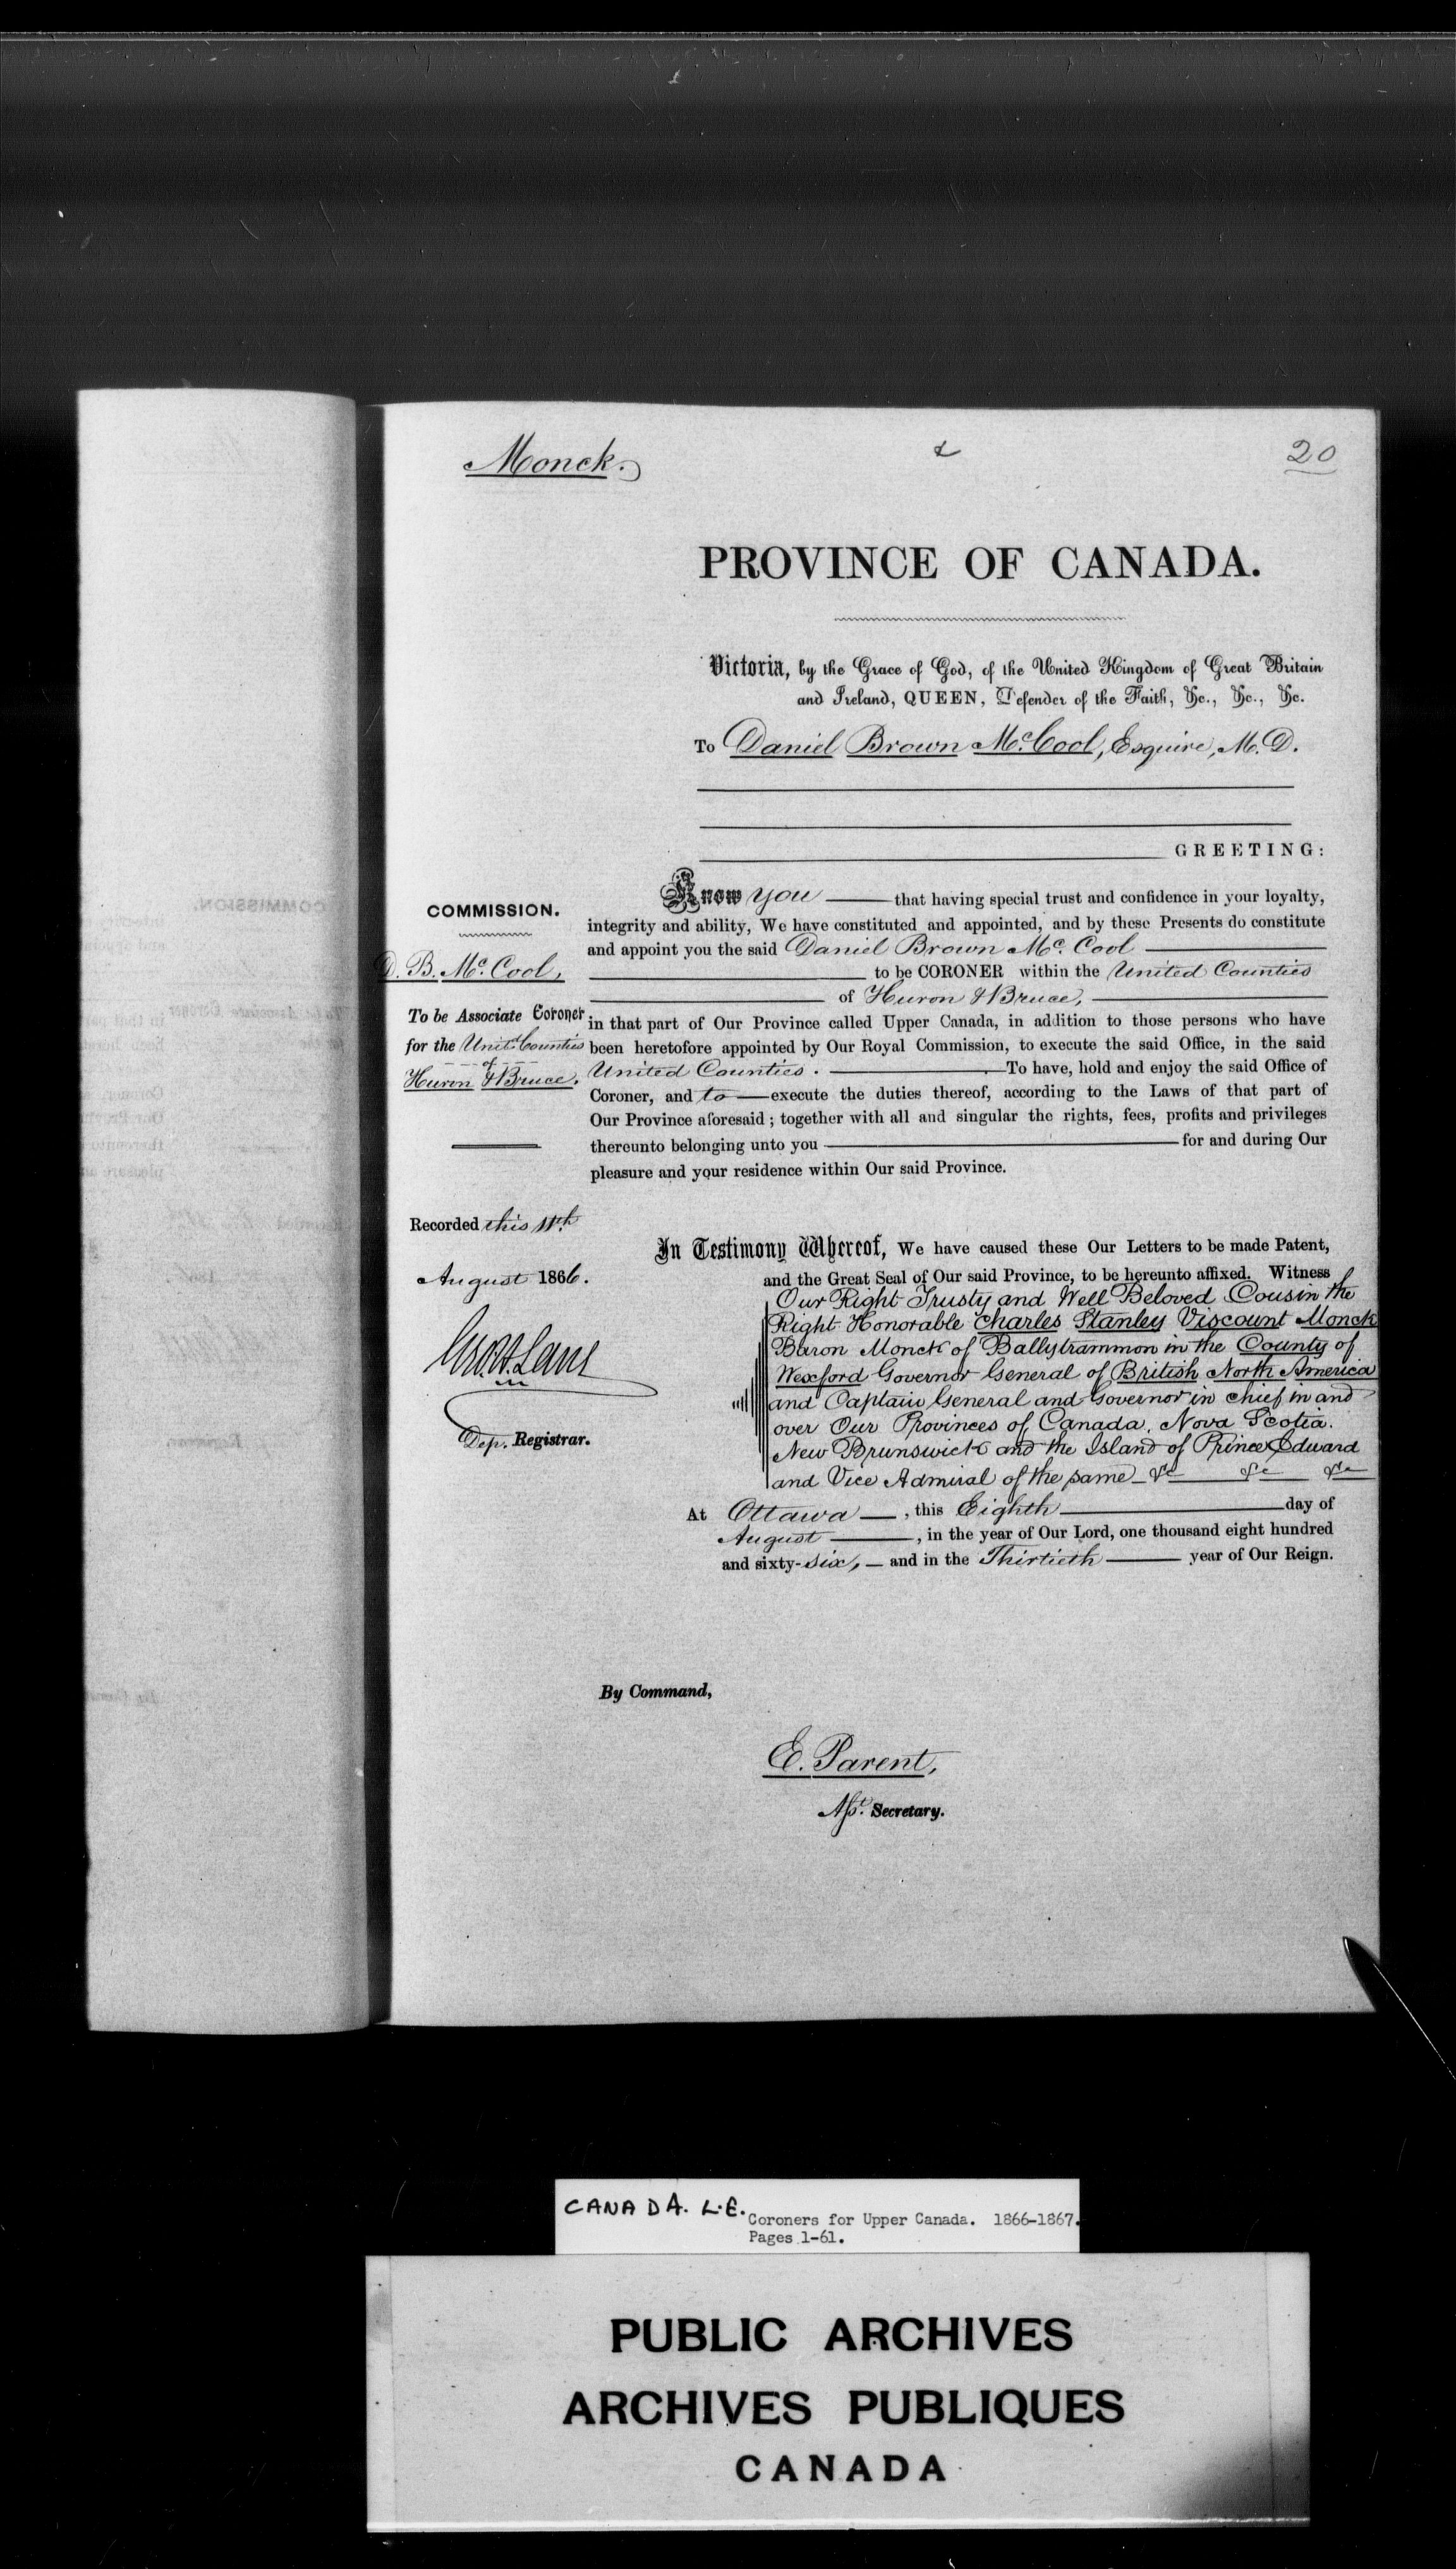 Monck.
20
PROVINCE OF CANADA.
Victoria, by the Grace of God, of the United Kingdom of Great Britain
and Ireland, QUEEN, Defender of the Faith, &c., &c., &c.
To Daniel Brown McCool, Esquire, M.D.
GREETING:
Know you that having special trust and confidence in your loyalty,
integrity and ability, We have constituted and appointed, and by these Presents do constitute
and appoint you the said Daniel Brown Mc. Cool
to be CORONER within the United Counties
of Huron & Bruce,
in that part of Our Province called Upper Canada, in addition to those persons who have
been heretofore appointed by Our Royal Commission, to execute the said Office, in the said
United Counties. To have, hold and enjoy the said Office of
Coroner, and to execute the duties thereof, according to the Laws of that part of
Our Province aforesaid; together with all and singular the rights, fees, profits and privileges
thereunto belonging unto you for and during Our
pleasure and your residence within Our said Province.
COMMISSION.
D. B. Mc. Cool,
To be Associate Coroner
for the Unitd. Counties
of
Huron & Bruce.
Recorded this 11th
August 1866.
Dep. Registrar.
In Testimony Whereof, We have caused these Our Letters to be made Patent,
and the Great Seal of Our said Province, to be hereunto affixed. Witness
Our Right Trusty and Well Beloved Cousin the
Right Honorable Charles Stanley Viscount Monck
Baron Monck of Ballytrammon in the County of
Wexford Governor General of British North America
and Captain General and Governor in chief in and
over Our Provinces of Canada, Nova Scotia.
New Brunswick and the Island of Prince Edward
and Vice Admiral of the same &c &c &c
At Ottawa, this Eighth day of
August, in the year of Our Lord, one thousand eight hundred
and sixty-six, and in the Thirtieth year of Our Reign.
By Command,
E. Parent,
Asst. Secretary.
CANADA. L.E.
Coroners for Upper Canada. 1866-1867.
Pages 1-61.
PUBLIC ARCHIVES
ARCHIVES PUBLIQUES
CANADA